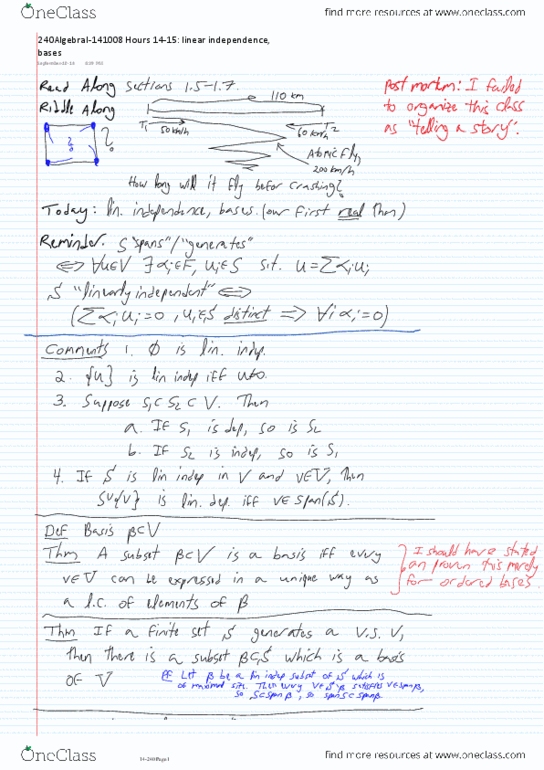 OneClass
find more resources at www.oneclass.com
240AlgebraI-141008 Hours 14-15: linear independence,
bases
Read Along sections 1.5-1.7
Riddle Along
110 km
T1
50 km/h
60 km/h
T2
?
?
Atomic Fly,
200 km/h
How long will it fly befor crashing?
post mortem: I failed
to organize this class
as "telling a story".
Today: lin. independence, bases. (our first real thm)
Reminder. S "spans"/"generates"
⟺ ∀u∈V ∃αi∈F, ui∈S s.t. u=Σαiui
S "linearly independent" ⟺
(Σαiui=0, ui∈S distinct ⟹ ∀i αi=0)
Comments 1. ∅ is lin. indep.
2. {u} is lin indep iff u≠0.
3. Suppose S1⊂S2⊂V. Then
a. If S1 is dep, so is S2
b. If S2 is indep, so is S1
4. If S is lin indep in V and v∈V, then
S∪{v} is lin. dep. iff v∈span(S).
Def Basis β⊂V
Thm A subset β⊂V is a basis iff every
v∈V can be expressed in a unique way as
a l.c. of elements of β
I should have stated
an proven this merely
for ordered bases.
Thm If a finite set S generates a V.S. V,
then there is a subset β⊂S which is a basis
of V
PF Let β be a lin indep subset of S which is
of maximal size. Then every v∈S\β satisfies v∈span β,
so S⊂span β, so span S⊂span β.
14-240 Page 1
OneClass
find more resources at www.oneclass.com